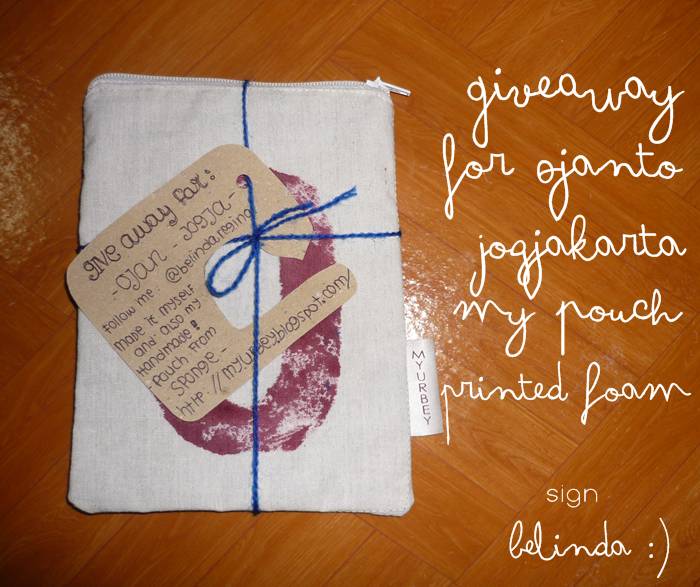 giveaway
for ojanto
jogjakarta
my pouch
printed foam
sign
belinda :)
GIVE away FOR:
- OJAN - JOGJA -
Follow me : @belindaregina
made it myself
and also my
Handmade!
- Pouch From
Sponge -
http://myurbey.blogspot.com/
MYURBEY